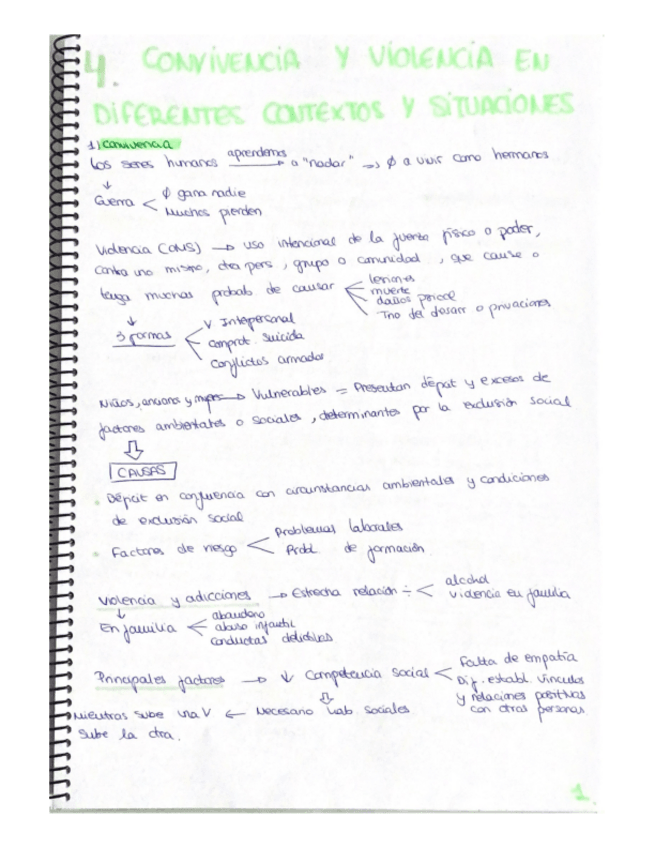 4. CONVIVENCIA Y VIOLENCIA EN
DIFERENTES CONTEXTOS Y SITUACIONES
1) Convivencia
Los seres humanos aprendemos → a "nadar" → ∅ a vivir como hermanos
↓
Guerra < ∅ gana nadie
Muchos pierden
Violencia (OMS) → uso intencional de la fuerza físico o poder,
contra uno mismo, otra pers, grupo o comunidad, que cause o
tenga muchas probab de causar < lesiones
muerte
daños psicol
Tno del desarr o privaciones
↓
3 formas < V Interpersonal
comprot. suicida
Conflictos armados
Niños, ancians y mujes → Vulnerables = Presentan déficit y excesos de
factores ambientales o sociales, determinantes por la exclusión social
⇓
CAUSAS
• Déficit en confluencia con circunstancias ambientales y condiciones
de exclusión social
• Factores de riesgo < Problemas laborales
Probl de formación
Violencia y adicciones → Estrecha relación ÷ < alcohol
violencia en familia
↓
En familia < abandono
abuso infantil
conductas delictivas
Principales factores → ↓ Competencia social < Falta de empatía
Dif. establ. vínculos
y relaciones positivas
con otras personas
⇓
Mientras sube una V ← Necesario hab sociales
sube la otra.
1